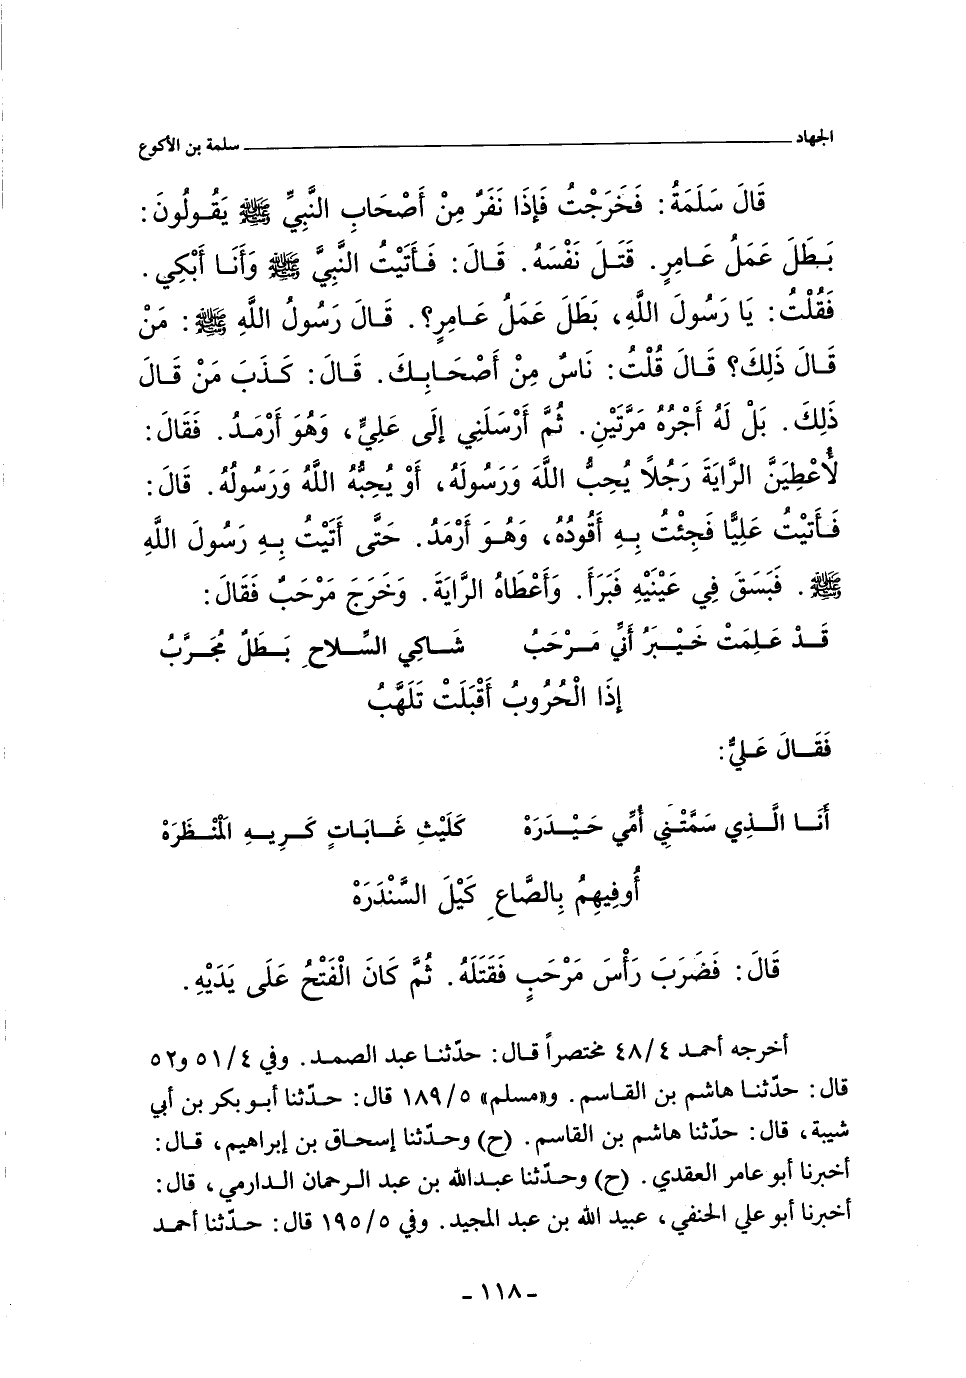 الجهاد ـــــ سلمة بن الأكوع
قَالَ سَلَمَةُ: فَخَرَجْتُ فَإِذَا نَفَرٌ مِنْ أَصْحَابِ النَّبِيِّ ﷺ يَقُولُونَ:
بَطَلَ عَمَلُ عَامِرٍ. قَتَلَ نَفْسَهُ. قَالَ: فَأَتَيْتُ النَّبِيَّ ﷺ وَأَنَا أَبْكِي.
فَقُلْتُ: يَا رَسُولَ اللَّهِ، بَطَلَ عَمَلُ عَامِرٍ؟. قَالَ رَسُولُ اللَّهِ ﷺ: مَنْ
قَالَ ذَلِكَ؟ قَالَ قُلْتُ: نَاسٌ مِنْ أَصْحَابِكَ. قَالَ: كَذَبَ مَنْ قَالَ
ذَلِكَ. بَلْ لَهُ أَجْرُهُ مَرَّتَيْنِ. ثُمَّ أَرْسَلَنِي إِلَى عَلِيٍّ، وَهُوَ أَرْمَدُ. فَقَالَ:
لأُعْطِيَنَّ الرَّايَةَ رَجُلاً يُحِبُّ اللَّهَ وَرَسُولَهُ، أَوْ يُحِبُّهُ اللَّهُ وَرَسُولُهُ. قَالَ:
فَأَتَيْتُ عَلِيًّا فَجِئْتُ بِهِ أَقُودُهُ، وَهُوَ أَرْمَدُ. حَتَّى أَتَيْتُ بِهِ رَسُولَ اللَّهِ
ﷺ. فَبَسَقَ فِي عَيْنَيْهِ فَبَرَأَ. وَأَعْطَاهُ الرَّايَةَ. وَخَرَجَ مَرْحَبٌ فَقَالَ:
قَدْ عَلِمَتْ خَيْبَرُ أَنِّي مَرْحَبُ شَاكِي السِّلَاحِ بَطَلٌ مُجَرَّبُ
إِذَا الْحُرُوبُ أَقْبَلَتْ تَلَهَّبُ
فَقَالَ عَلِيٌّ:
أَنَا الَّذِي سَمَّتْنِي أُمِّي حَيْدَرَهْ كَلَيْثِ غَابَاتٍ كَرِيهِ الْمَنْظَرَهْ
أُوفِيهِمُ بِالصَّاعِ كَيْلَ السَّنْدَرَهْ
قَالَ: فَضَرَبَ رَأْسَ مَرْحَبٍ فَقَتَلَهُ. ثُمَّ كَانَ الْفَتْحُ عَلَى يَدَيْهِ.
أخرجه أحمد ٤٨/٤ مختصراً قال: حدّثنا عبد الصمد. وفي ٥١/٤ و٥٢
قال: حدّثنا هاشم بن القاسم. و«مسلم» ١٨٩/٥ قال: حدّثنا أبو بكر بن أبي
شيبة، قال: حدّثنا هاشم بن القاسم. (ح) وحدّثنا إسحاق بن إبراهيم، قال:
أخبرنا أبو عامر العقدي. (ح) وحدّثنا عبدالله بن عبد الرحمان الدارمي، قال:
أخبرنا أبو علي الحنفي، عبيد الله بن عبد المجيد. وفي ١٩٥/٥ قال: حدّثنا أحمد
- ١١٨ -